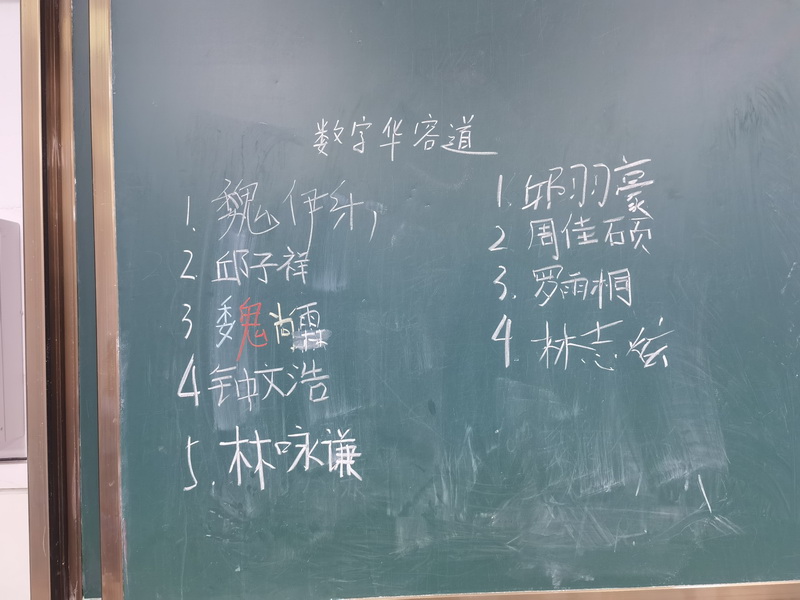 数字华容道
1. 魏伊
2. 邱子祥
3 魏尚霖
4 钟文浩
5. 林咏谦
1. 邱羽豪
2 周佳硕
3. 罗雨桐
4. 林志